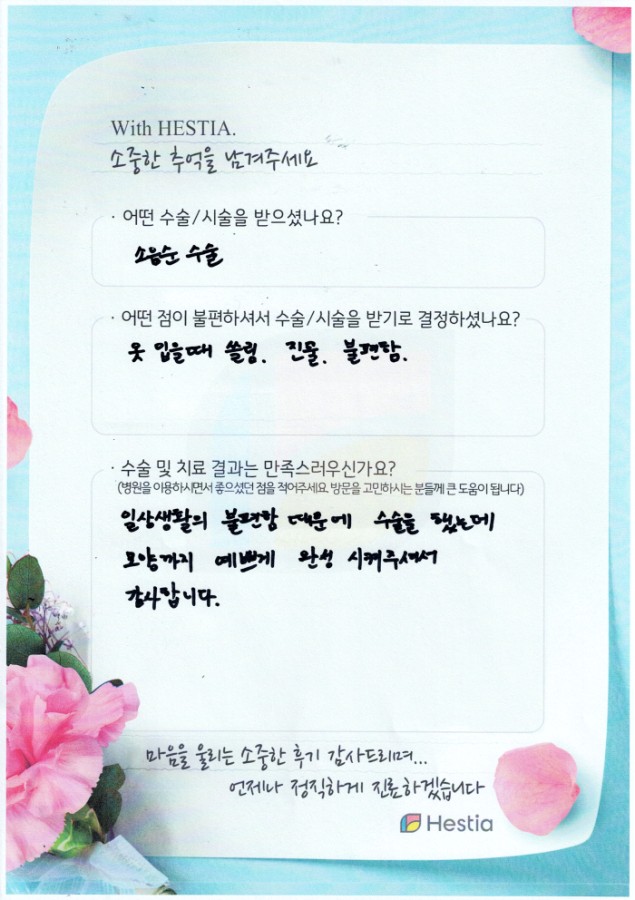 With HESTIA.
소중한 추억을 남겨주세요
· 어떤 수술/시술을 받으셨나요?
소음순 수술
· 어떤 점이 불편하셔서 수술/시술을 받기로 결정하셨나요?
옷 입을때 쓸림, 진물, 불편함.
· 수술 및 치료 결과는 만족스러우신가요?
(병원을 이용하시면서 좋으셨던 점을 적어주세요. 방문을 고민하시는 분들께 큰 도움이 됩니다)
일상생활의 불편함 때문에 수술을 했는데
모양까지 예쁘게 완성 시켜주셔서
감사합니다.
마음을 울리는 소중한 후기 감사드리며...
언제나 정직하게 진료하겠습니다
Hestia